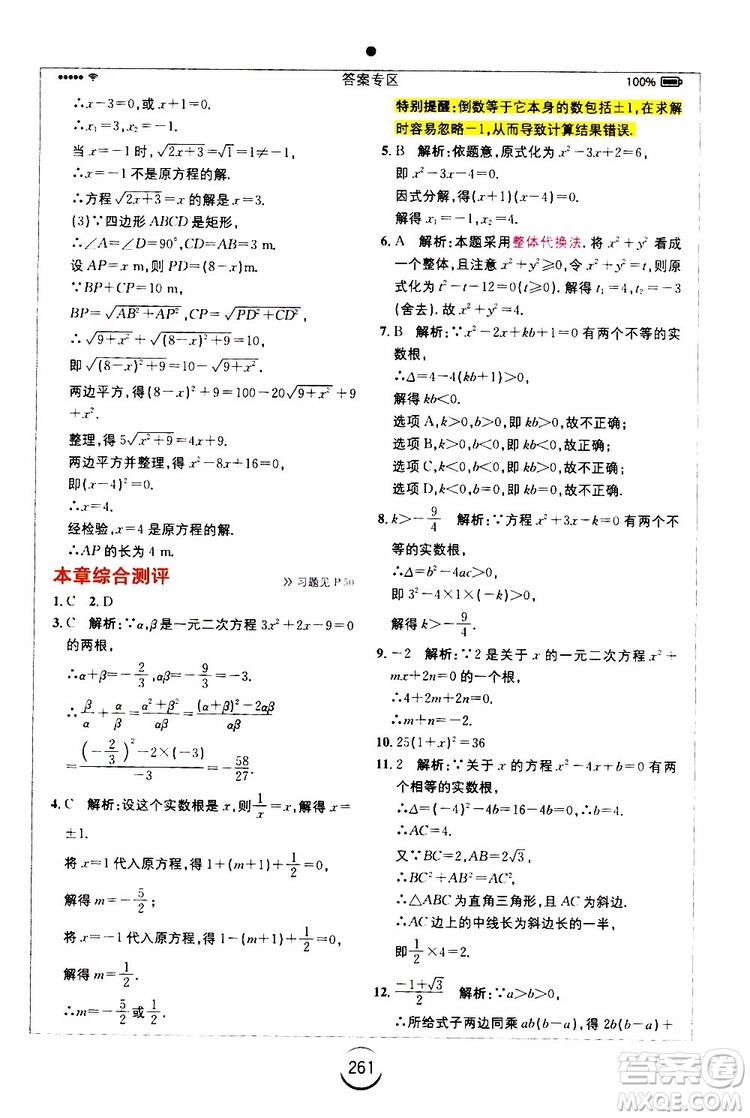 答案专区
100%
∴x－3=0,或x＋1=0.
∴x₁=3,x₂=－1.
当 x=－1 时,√(2x+3)=√1≠－1,
∴－1 不是原方程的解.
∴方程√(2x+3)=x 的解是 x=3.
(3)∵四边形 ABCD 是矩形,
∴∠A=∠D=90°,CD=AB=3 m.
设 AP=x m,则 PD=(8－x) m.
∵BP+CP=10 m,
BP=√(AB²+AP²),CP=√(PD²+CD²),
∴√(9+x²)+√((8－x)²+9)=10.
即√((8－x)²+9)=10－√(9+x²).
两边平方,得(8－x)²+9=100－20√(9+x²)+9
+x².
整理,得 5√(x²+9)=4x+9.
两边平方并整理,得 x²－8x+16=0,
即(x－4)²=0.
∴x=4.
经检验,x=4 是原方程的解.
∴AP 的长为 4 m.
本章综合测评
≫ 习题见 P50
1. C 2. D
3. C 解析:∵α,β是一元二次方程 3x²+2x－9=0
的两根,
∴α+β=－2/3,αβ=－9/3=－3.
∴β/α+α/β=(α²+β²)/αβ=((α+β)²－2αβ)/αβ
=((－2/3)²－2×(－3))/－3=－58/27.
4. C 解析:设这个实数根是 x,则 1/x=x,解得 x=
±1.
将 x=1 代入原方程,得 1+(m+1)+1/2=0,
解得 m=－5/2;
将 x=－1 代入原方程,得 1－(m+1)+1/2=0,
解得 m=1/2.
∴m=－5/2或1/2.
特别提醒:倒数等于它本身的数包括±1,在求解
时容易忽略－1,从而导致计算结果错误.
5. B 解析:依题意,原式化为 x²－3x+2=6,
即 x²－3x－4=0.
因式分解,得(x+1)(x－4)=0.
解得 x₁=－1,x₂=4.
6. A 解析:本题采用整体代换法.将 x²+y² 看成
一个整体,且 x²+y²≥0,令 x²+y²=t,则原
式化为 t²－t－12=0(t≥0).解得 t₁=4,t₂=－3
(舍去).故 x²+y²=4.
7. B 解析:∵x²－2x+kb+1=0 有两个不等的实
数根,
∴Δ=4－4(kb+1)>0,
解得 kb<0.
选项 A,k>0,b>0,即 kb>0,故不正确;
选项 B,k>0,b<0,即 kb<0,故正确;
选项 C,k<0,b<0,即 kb>0,故不正确;
选项 D,k<0,b=0,即 kb=0,故不正确.
8. k>－9/4 解析:∵方程 x²+3x－k=0 有两个不
等的实数根,
∴Δ=b²－4ac>0,
即 3²－4×1×(－k)>0,
解得 k>－9/4.
9. －2 解析:∵2 是关于 x 的一元二次方程 x²+
mx+2n=0 的一个根,
∴4+2m+2n=0.
∴m+n=－2.
10. 25(1+x)²=36
11. 2 解析:∵关于 x 的方程 x²－4x+b=0 有两
个相等的实数根,
∴Δ=(－4)²－4b=16－4b=0,
∴AC=4.
又∵BC=2,AB=2√3,
∴BC²+AB²=AC².
∴△ABC 为直角三角形,AC 为斜边.
∴AC 边上的中线长为斜边的一半,
即1/2×4=2.
12. (－1+√3)/2 解析:∵a>b>0,
∴所给式子两边同乘 ab(b－a),得 2b(b－a)+
261
答案圈
MXQE.COM